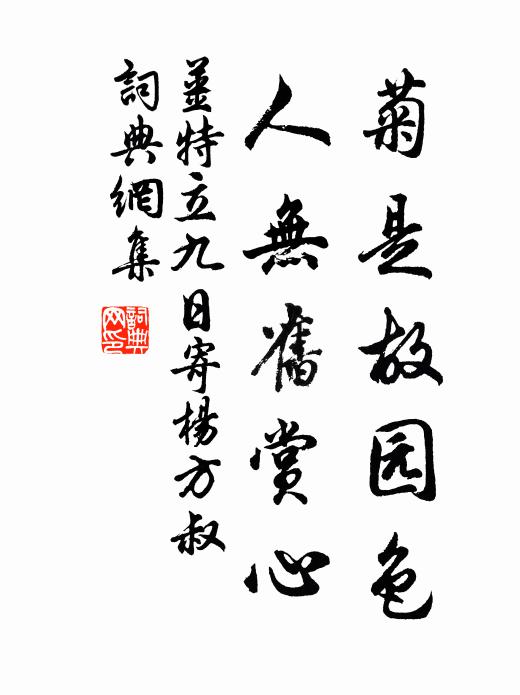 菊是故园色
人無舊賞心
姜特立九日寄楊方叔
詞典網集
詞典网印